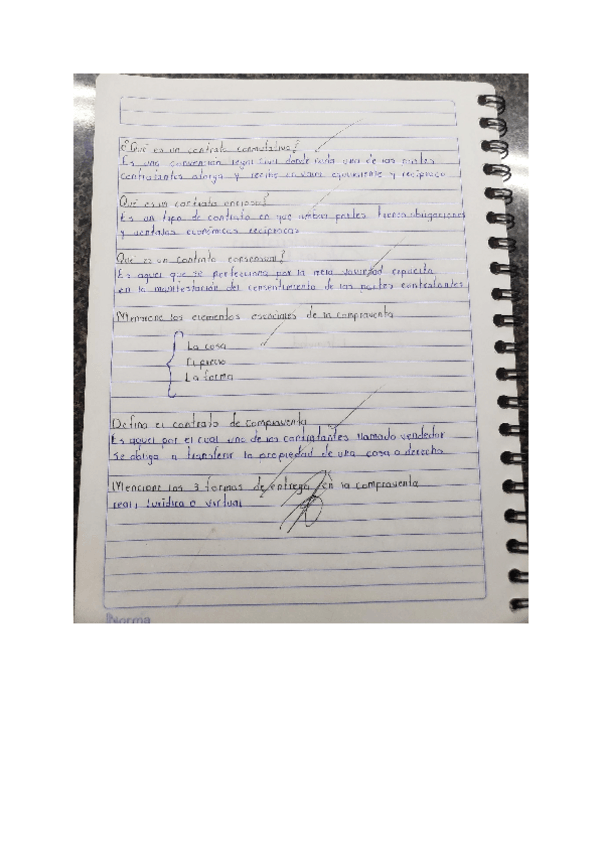 ¿Qué es un contrato conmutativo?
Es una convención legal civil donde cada una de las partes
contratantes otorga y recibe en valor equivalente y reciproco
Qué es un contrato oneroso?
Es un tipo de contrato en que ambas partes tienen obligaciones
y ventajas económicas reciprocas
Qué es un contrato consensual?
Es aquel que se perfecciona por la mera voluntad
en la manifestación del consentimiento de las partes contratantes
Mencione los elementos esenciales de la compraventa
La cosa
El precio
La forma
Defina el contrato de compraventa
Es aquel por el cual uno de los contratantes llamado vendedor
se obliga a transferir la propiedad de una cosa o derecho
Mencione las 3 formas de entrega en la compraventa
real, Jurídica o virtual
Norma